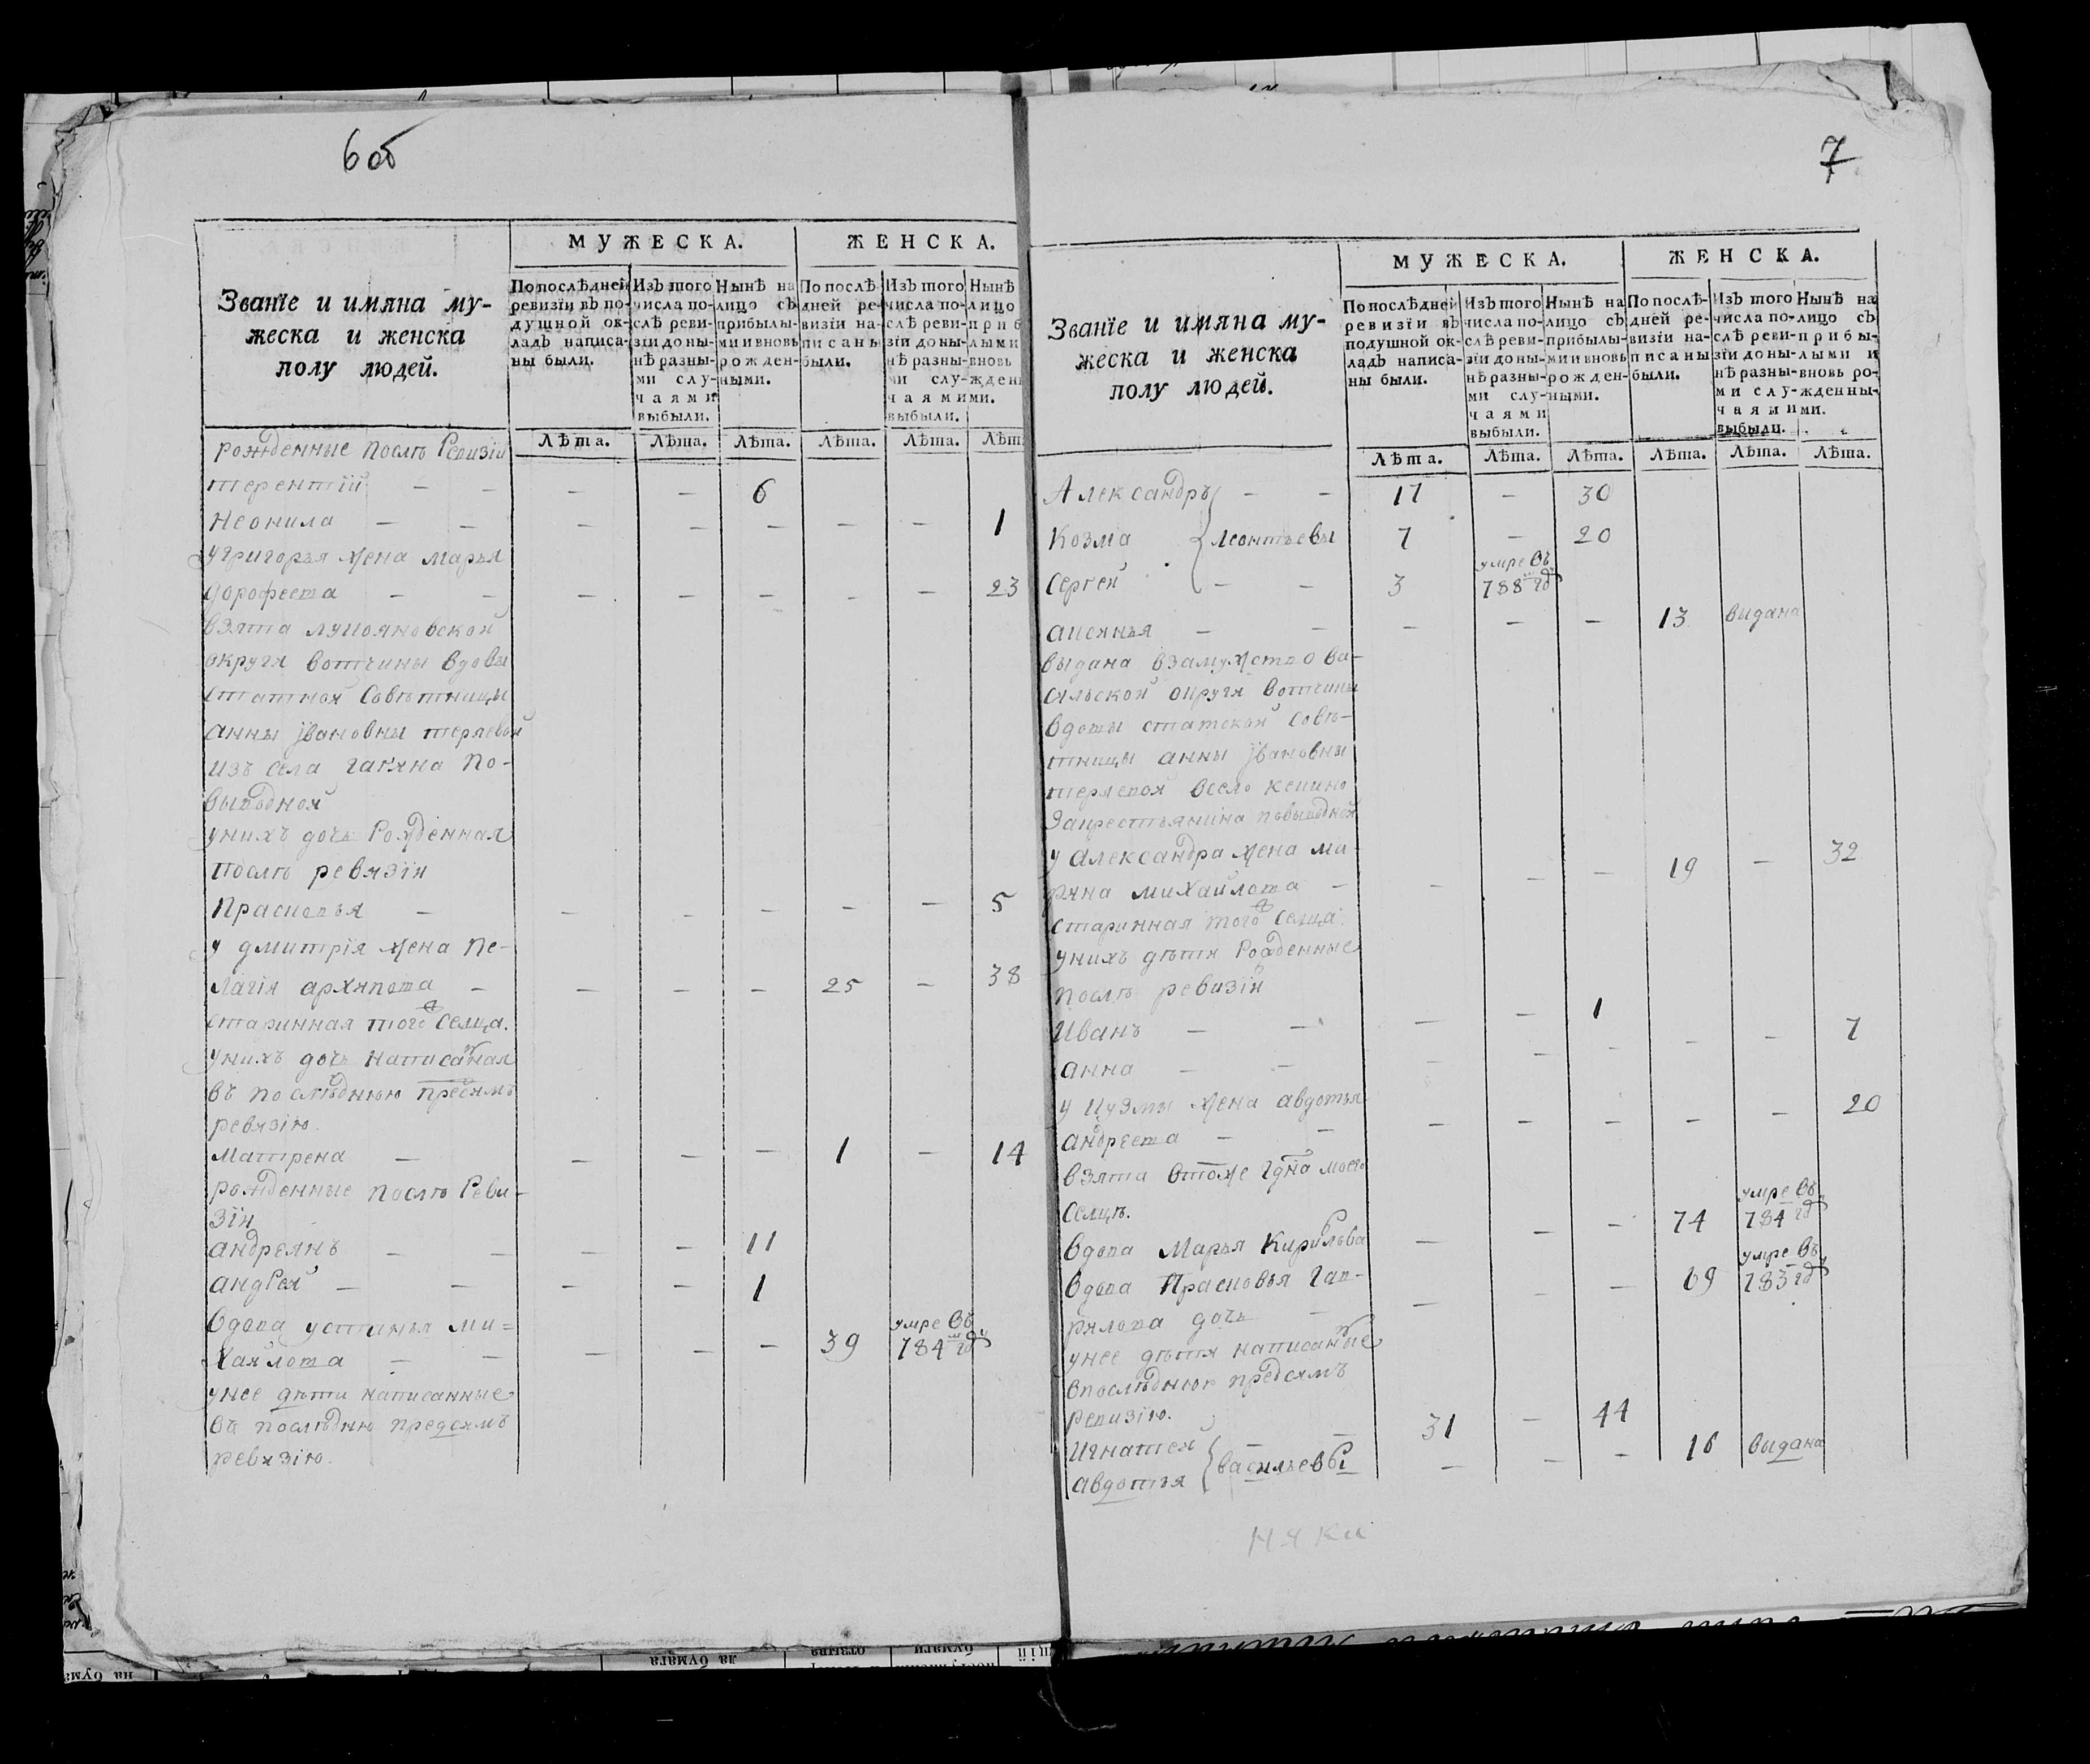 6 об
Званїе и имяна му-
жеска и женска
полу людей.
МУЖЕСКА.
ЖЕНСКА.
По послѣдней
ревизїи въ по-
душной ок-
ладъ написа-
ны были.
Изъ того
числа по-
слѣ реви-
зїи до ны-
нѣ разны-
ми слу-
чаями
выбыли.
Нынѣ на
лицо съ
прибылы-
ми и вновь
рожден-
ными.
По послѣ-
дней ре-
визїи на-
писаны
были.
Изъ того
числа по-
слѣ реви-
зїи до ны-
нѣ разны-
ми слу-
чаями
выбыли.
Нынѣ
лицо
приб
лыми
вновь
жден
ми.
Лѣта. Лѣта. Лѣта. Лѣта. Лѣта. Лѣт
рожденные послѣ Ревизїи
терентїй — — — — 6
Неонила — — — — — — — 1
у григорья жена марья
дорофеева — — — — — — — 23
взята лукояновской
округи вотчины вдовы
статской Совѣтницы
анны Iвановны теряевой
изъ села гагина по-
выводной
унихъ дочь Рожденная
послѣ ревизїи
Прасковья — — — — — — 5
у дмитрїя жена пе-
лагїя архипова — — — — 25 — 38
старинная того Селца.
унихъ дочь написаная
въ послѣднюю пред симъ
ревизїю.
Матрена — — — — 1 — 14
рожденные послѣ Реви-
зїи
андреянъ — — — — 11
андрей — — — — 1
вдова устинья ми-
хаилова — — — — — 39 умре въ 784 мъ году
унее дѣти написанные
въ послѣдню предсимъ
ревизїю.
7
Званїе и имяна му-
жеска и женска
полу людей.
МУЖЕСКА.
ЖЕНСКА.
По послѣдней
ревизїи въ
подушной ок-
ладъ написа-
ны были.
Изъ того
числа по-
слѣ реви-
зїи до ны-
нѣ разны-
ми слу-
чаями
выбыли.
Нынѣ на
лицо съ
прибылы-
ми и вновь
рожден-
ными.
По послѣ-
дней ре-
визїи на-
писаны
были.
Изъ того
числа по-
слѣ реви-
зїи до ны-
нѣ разны-
ми слу-
чаями
выбыли.
Нынѣ на
лицо съ
прибы-
лыми и
вновь ро-
жденны-
ми.
Лѣта. Лѣта. Лѣта. Лѣта. Лѣта. Лѣта.
Александръ — — 17 — 30
Козма леонтьевы 7 — 20
Сергей — — 3 умре въ 788 мъ году
аксинья — — — — — 13 выдана
выдана взамужство ва-
сильской округи вотчины
вдовы статской Совѣ-
тницы анны Iвановны
теряевой всело кекино
закрестьянина повыводной
у александра жена ма-
рина михаилова — — — — 19 — 32
старинная того Селца.
унихъ дѣти Рожденные
послѣ ревизїи
Иванъ — — — — 1
анна — — — — — — — 7
у кузмы жена авдотья
андреева — — — — — — — 20
взята втоже Гдна моего
Селцѣ.
вдова Марья Кирилова — — — 74 умре въ 784 году
вдова Прасковья гав-
рилова дочь — — — — 69 умре въ 783 году
унее дѣти написаные
впослѣднюю предсимъ
ревизїю.
Игнатей — — 31 — 44
авдотья васильевы — — — 16 выдана